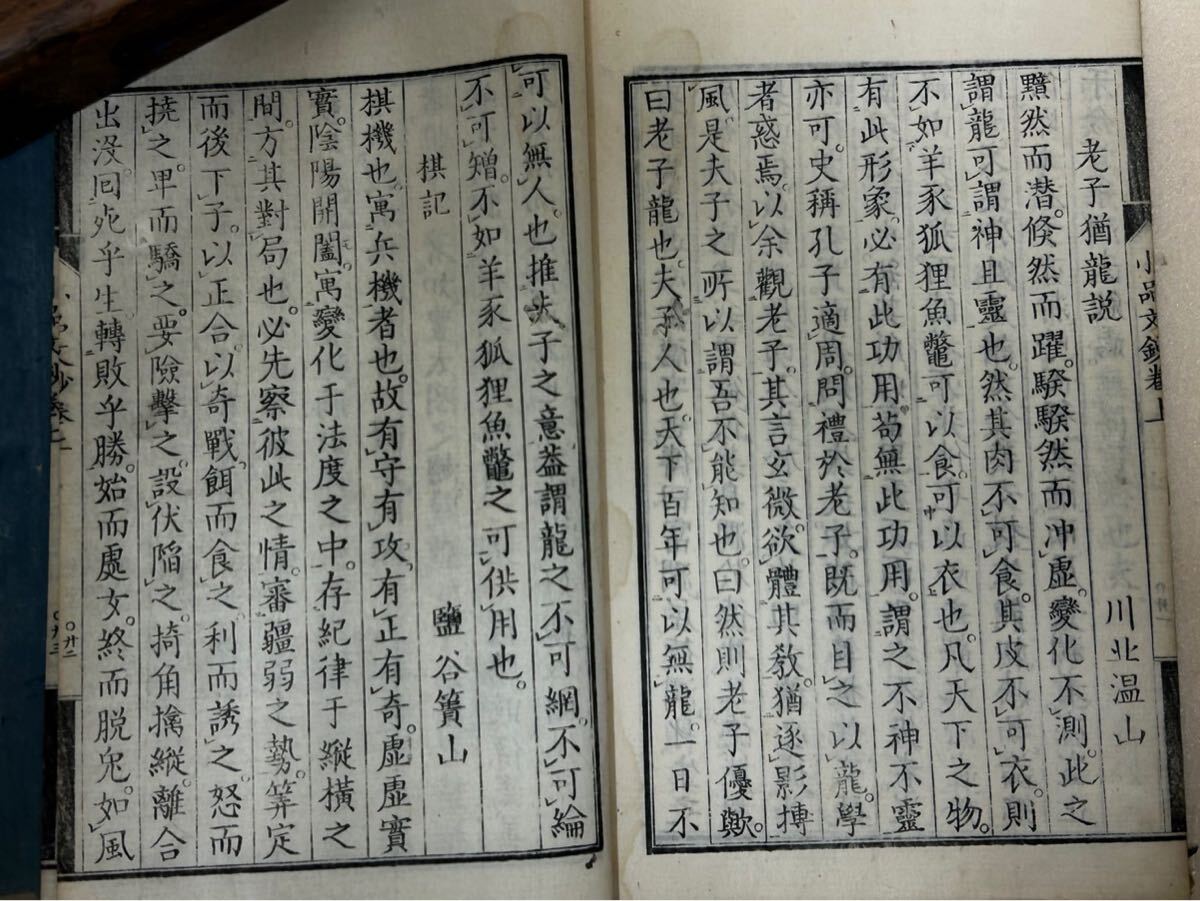 小品文鈔卷上
老子猶龍説 川北温山
黯然而潜。倏然而躍。騤騤然而冲虛。變化不測。此之
謂龍。可謂神且靈也。然其肉不可食。其皮不可衣。則
不如羊豕狐狸魚鼈可以食。可以衣也。凡天下之物。
有此形象。必有此功用。苟無此功用。謂之不神不靈
亦可。史稱孔子適周。問禮於老子。既而目之以龍。學
者惑焉。以余觀老子。其言玄微。欲體其教。猶逐影搏
風。是夫子之所以謂吾不能知也。曰然則老子優歟。
曰老子龍也。夫子人也。天下百年可以無龍。一日不
可以無人也。推夫子之意。葢謂龍之不可網。不可綸
不可矰。不如羊豕狐狸魚鼈之可供用也。
棋記 鹽谷簣山
棋機也。寓兵機者也。故有守有攻。有正有奇。虛虛實
實。陰陽開闔。寓變化于法度之中。存紀律于縱橫之
間。方其對局也。必先察彼此之情。審疆弱之勢。筭定
而後下子。以正合。以奇戰。餌而食之。利而誘之。怒而
撓之。卑而驕之。要險擊之。設伏陷之。掎角擒縱。離合
出沒。回死乎生。轉敗乎勝。始而處女。終而脱兔。如風